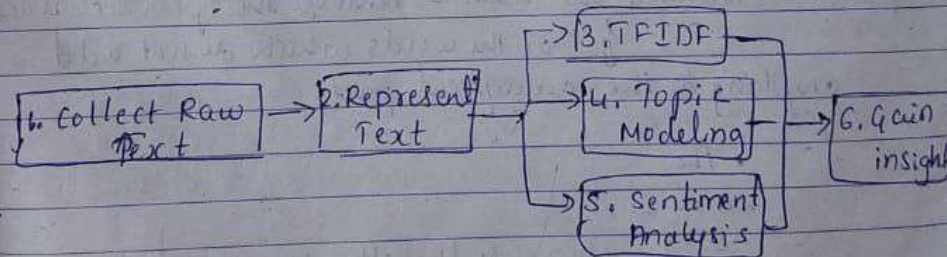 1. Collect Raw
Text
2. Represent
Text
3. TFIDF
4. Topic
Modeling
5. Sentiment
Analysis
6. Gain
insigh